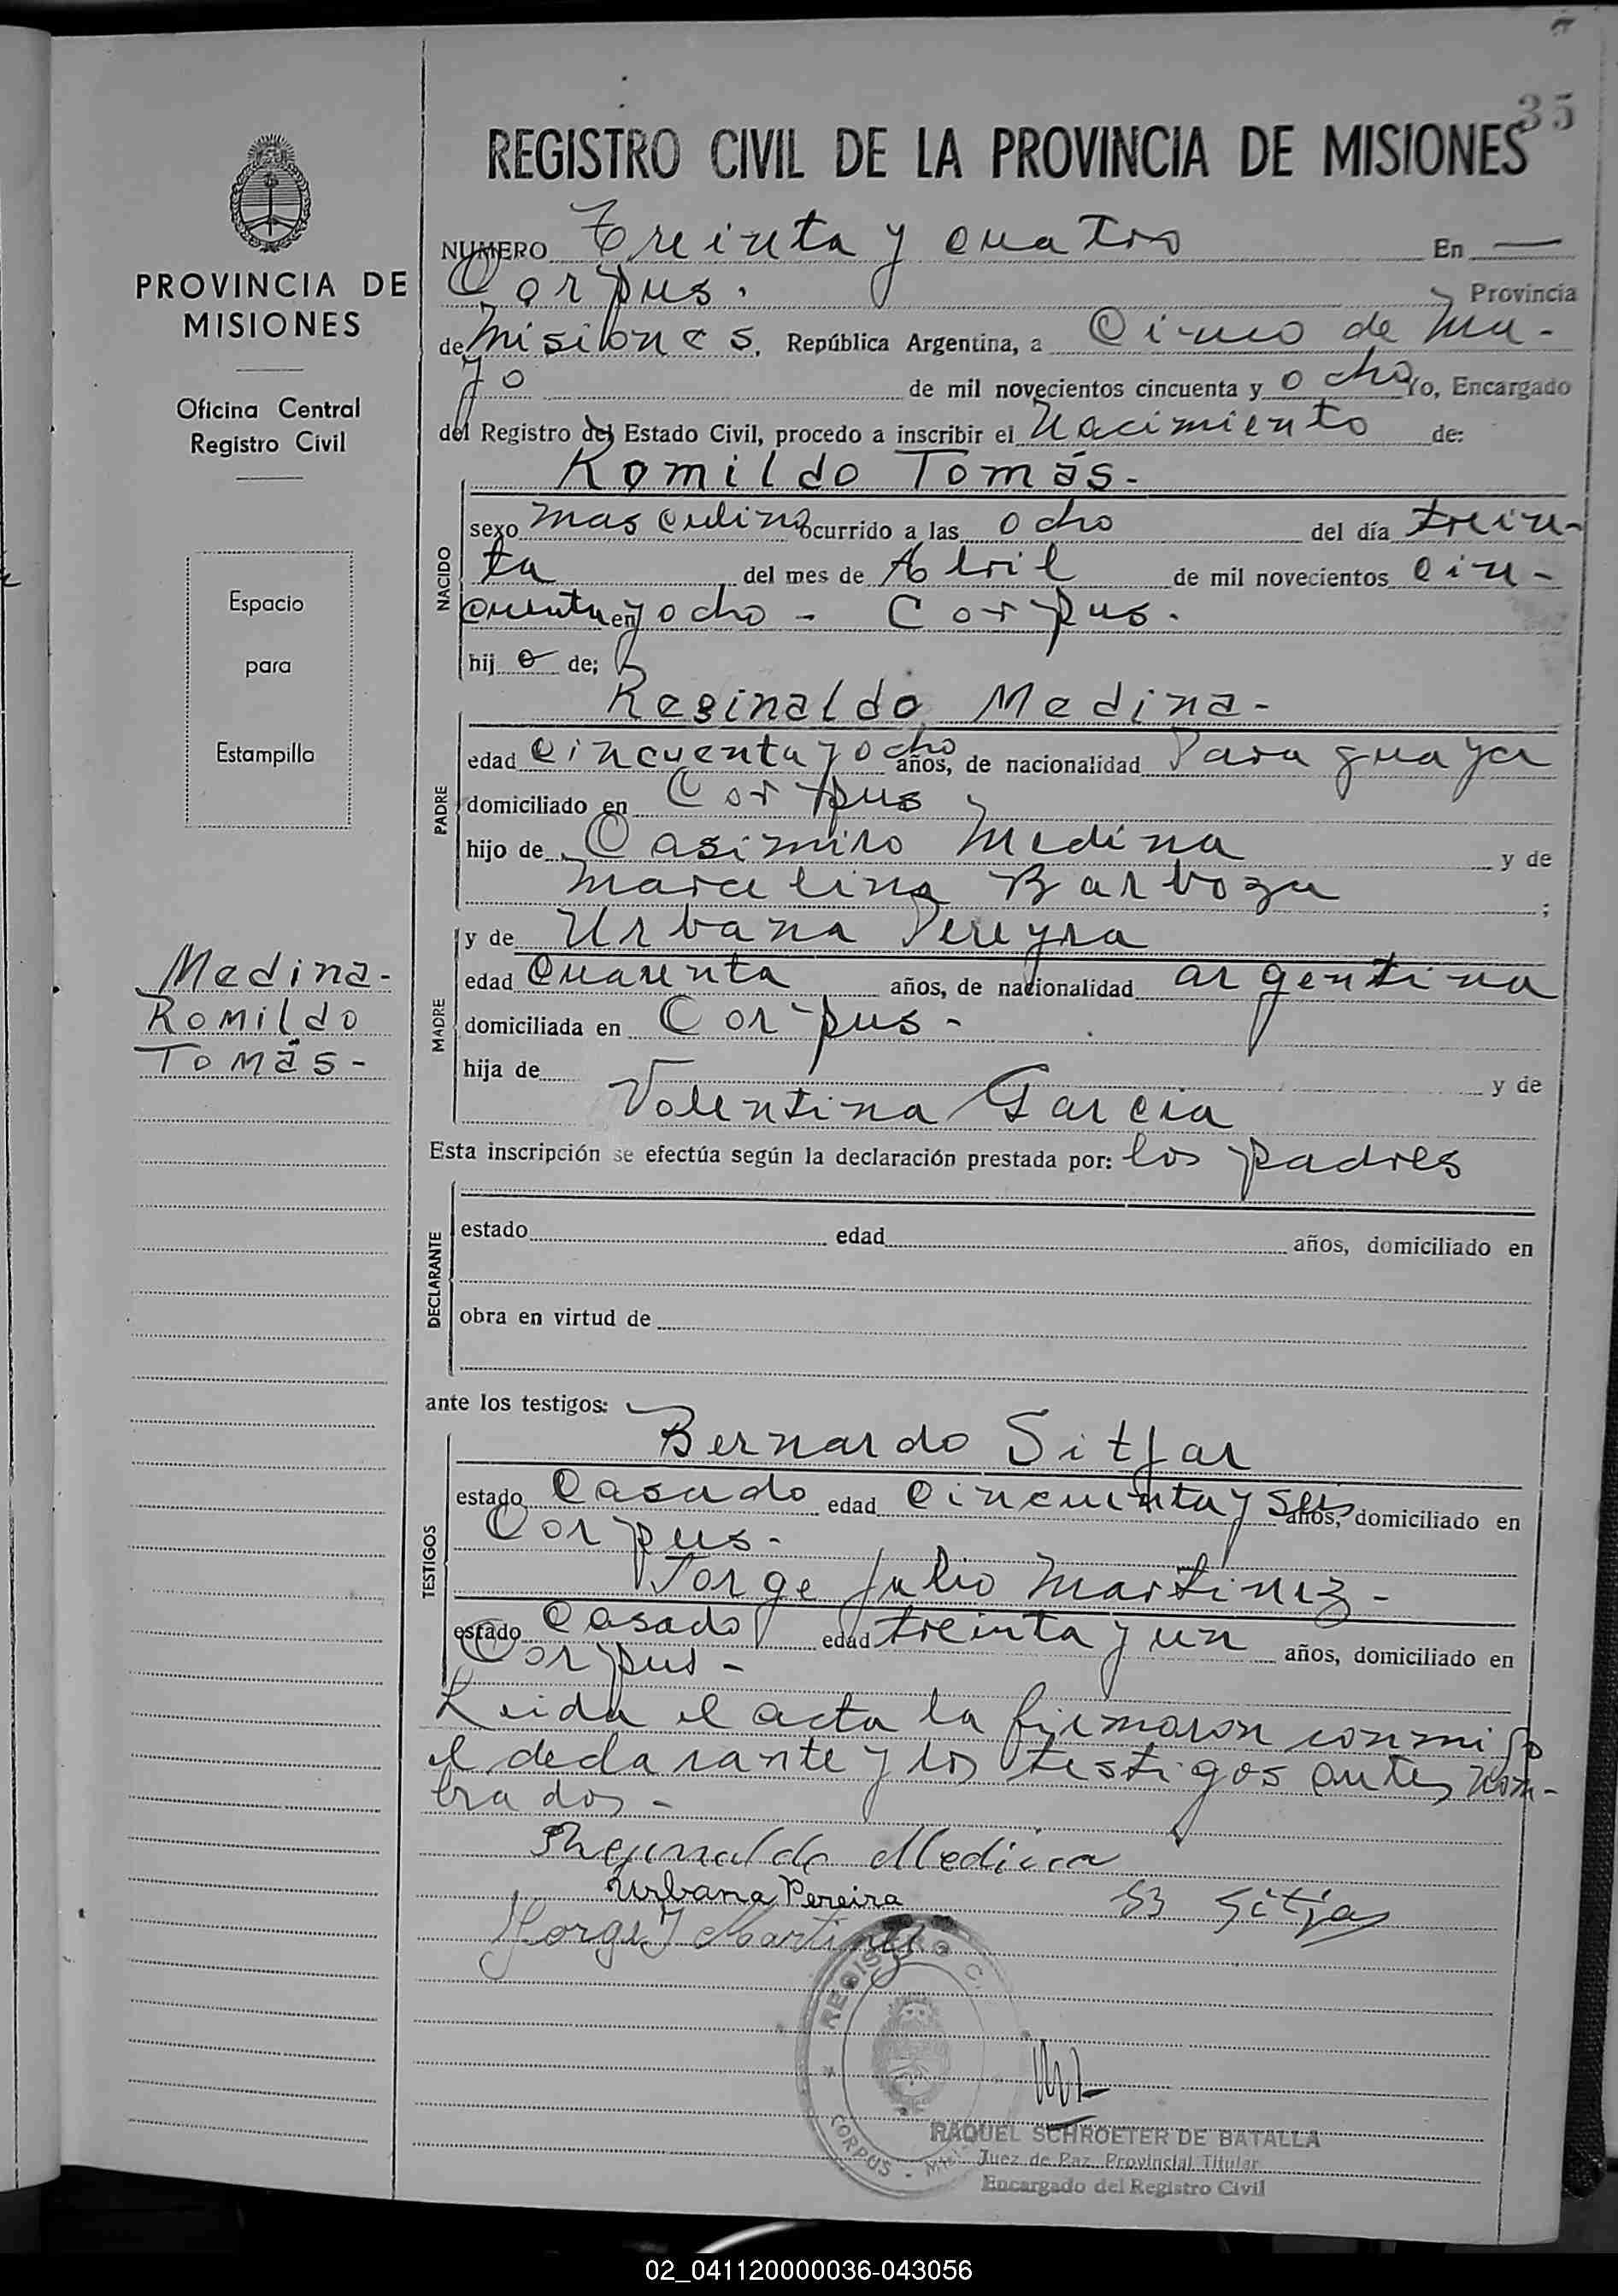 35
REGISTRO CIVIL DE LA PROVINCIA DE MISIONES
NUMERO Treinta y cuatro En
Corpus. Provincia
de Misiones, República Argentina, a Cinco de Ma-
yo de mil novecientos cincuenta y ocho yo, Encargado
del Registro del Estado Civil, procedo a inscribir el Nacimiento de:
Romildo Tomás.-
NACIDO
sexo masculino ocurrido a las ocho del día trein-
ta del mes de Abril de mil novecientos cin-
cuenta y ocho - en Corpus.
hij o de;
Reginaldo Medina-
PADRE
edad cincuenta y ocho años, de nacionalidad Paraguaya
domiciliado en Corpus
hijo de Casimiro Medina y de
Marcelina Barboza ;
y de Urbana Pereyra
MADRE
edad cuarenta años, de nacionalidad argentina
domiciliada en Corpus-
hija de y de
Valentina Garcia
Esta inscripción se efectúa según la declaración prestada por: los padres
DECLARANTE
estado edad años, domiciliado en
obra en virtud de
ante los testigos:
Bernardo Sitjar
TESTIGOS
estado Casado edad Cincuenta y seis años, domiciliado en
Corpus-
Jorge Julio Martinez-
estado Casado edad treinta y un años, domiciliado en
Corpus-
Leida el acta la firmaron conmigo
el declarante y los testigos antes nom-
brados-
Rheginaldo Medina
Urbana Pereira B Sitjar
Jorge J Martinez
REGISTRO C.
CORPUS - MI
RAQUEL SCHROETER DE BATALLA
Juez de Paz Provincial Titular
Encargado del Registro Civil
PROVINCIA DE
MISIONES
Oficina Central
Registro Civil
Espacio
para
Estampilla
Medina-
Romildo
Tomás-
02_041120000036-043056